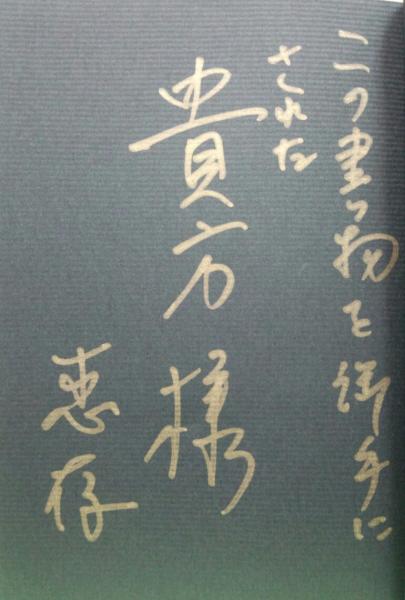 この書物を御手に
された
貴方様
恵存